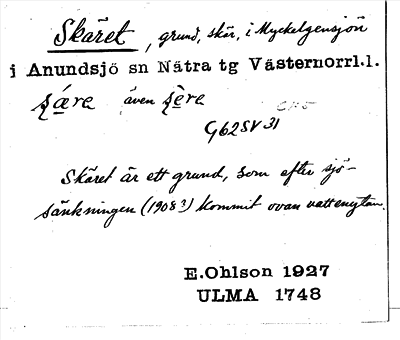 Skäret, grund, skär, i Myckelgensjön
i Anundsjö sn Nätra tg Västernorrl.l.
även
G62SV31
Skäret är ett grund, som efter sjö-
sänkningen (1908?) kommit ovan vattenytan.
E.Ohlson 1927
ULMA 1748